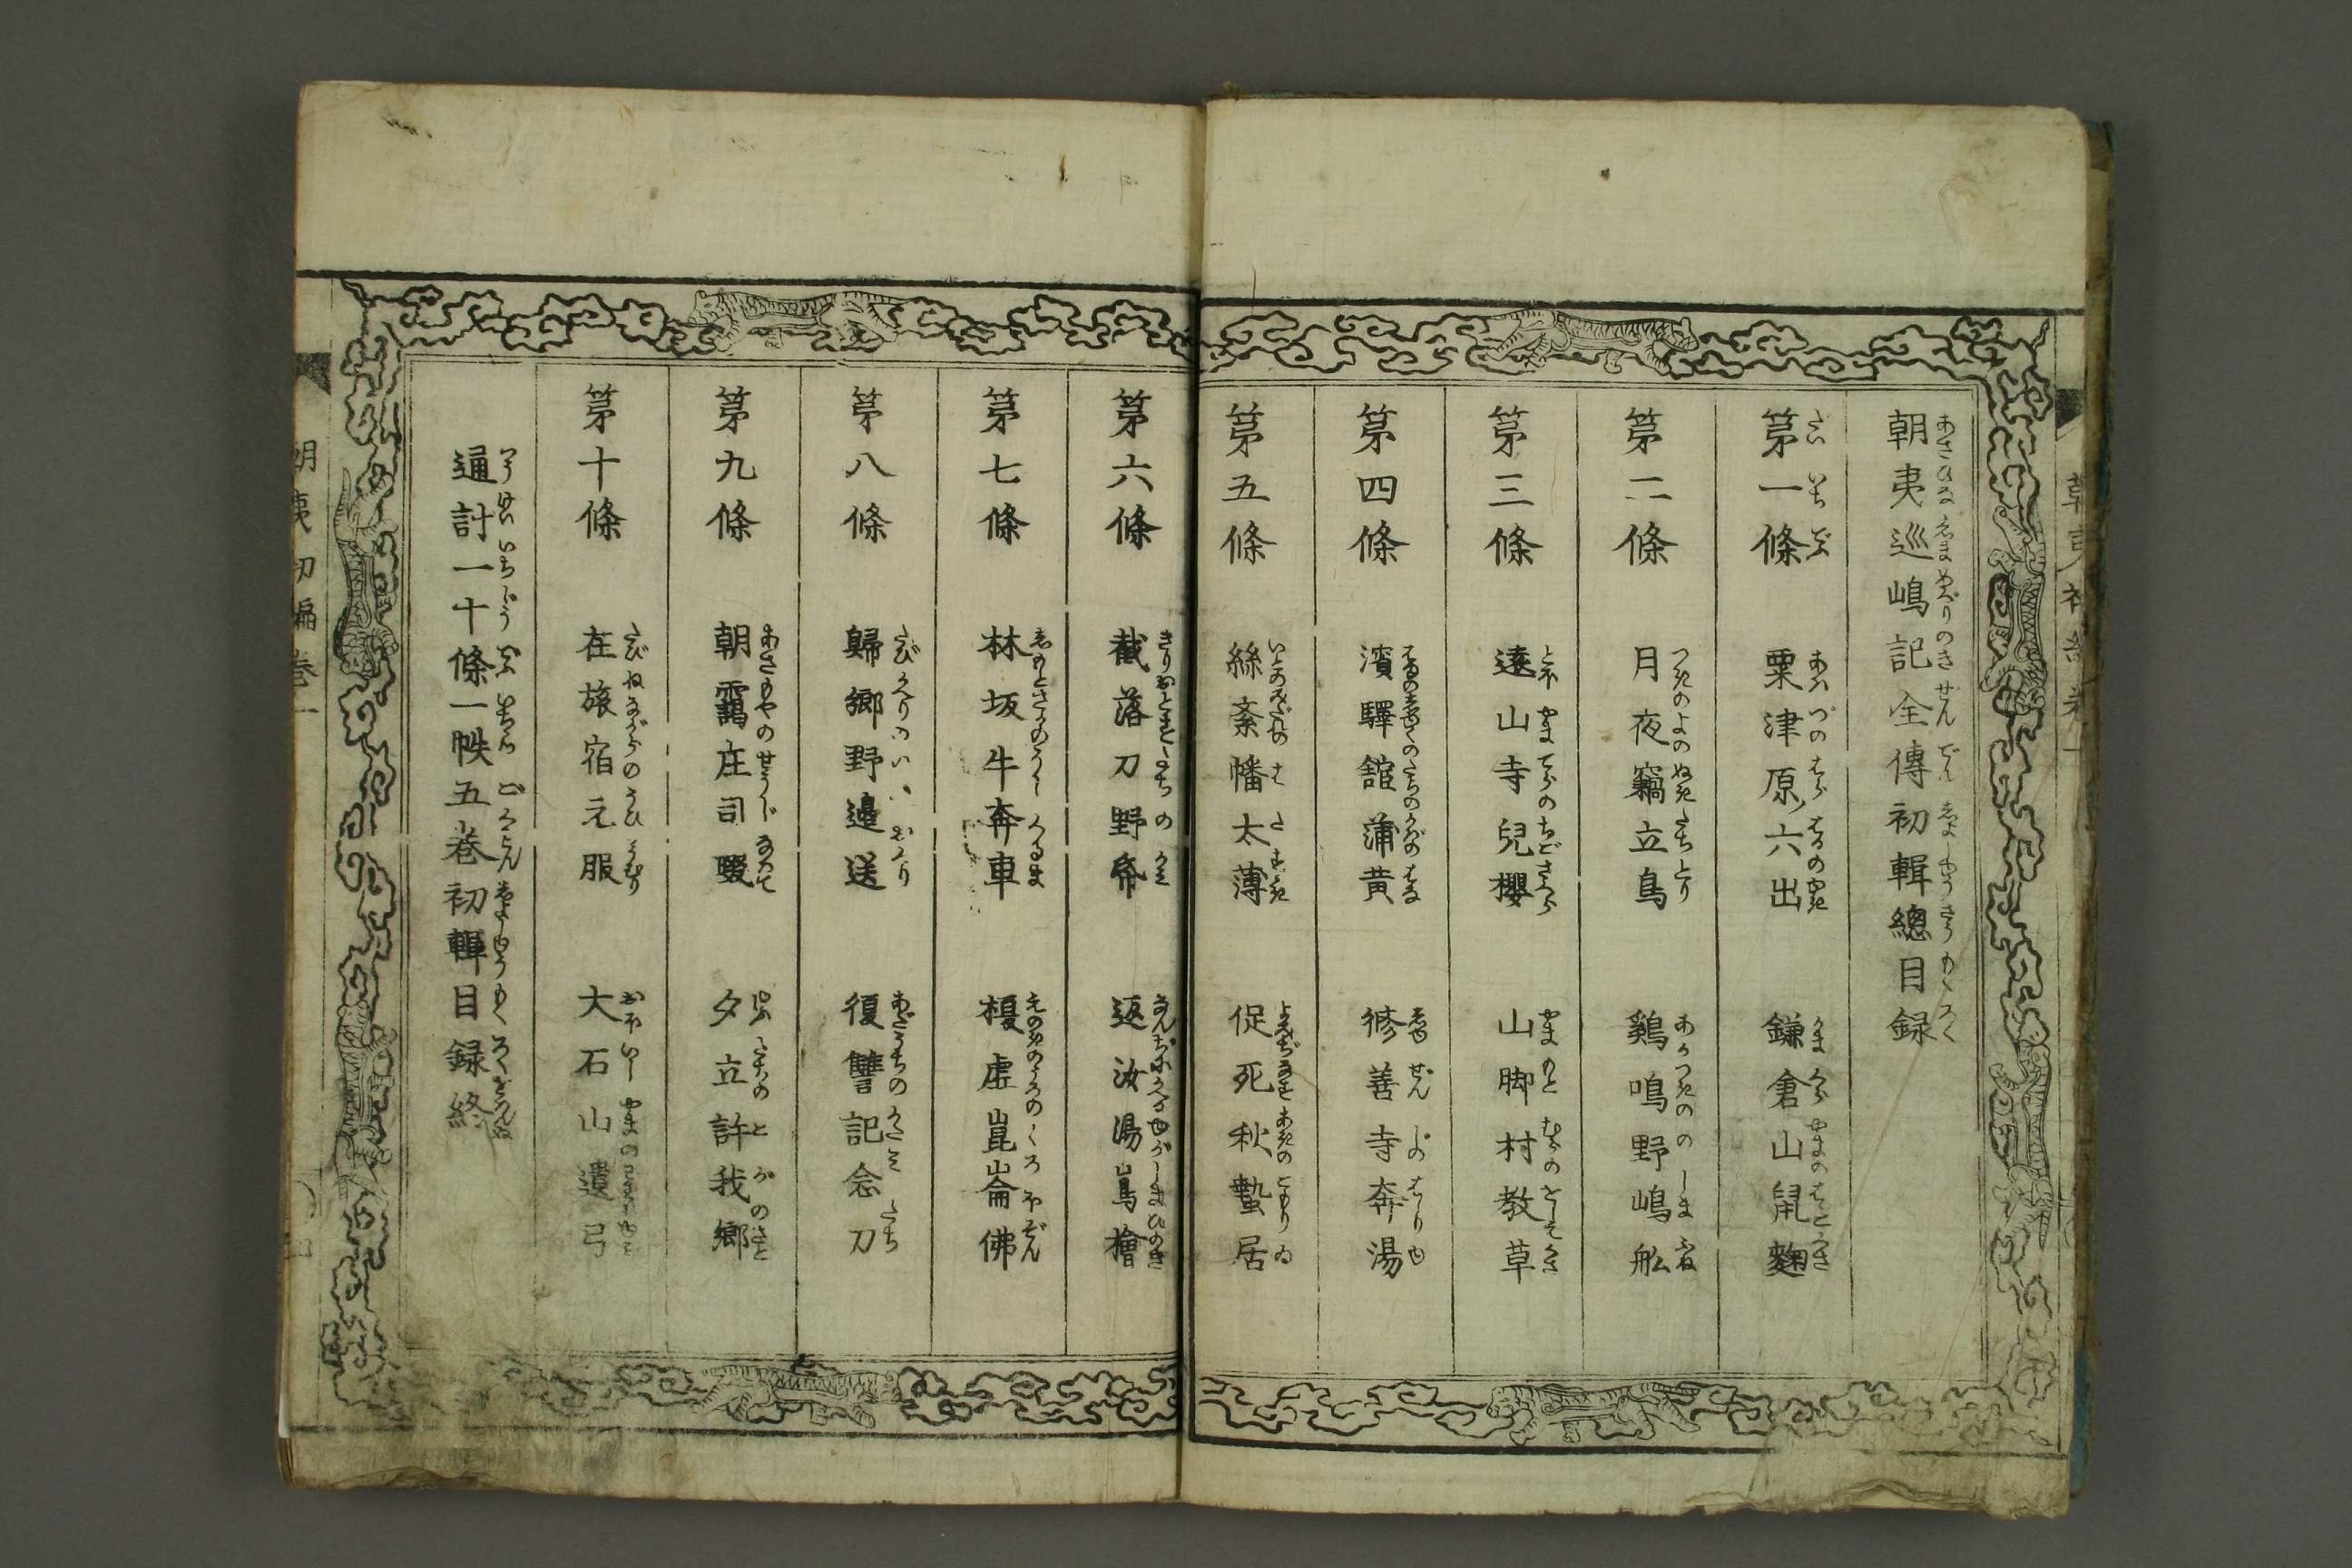 朝夷巡嶋記全傳初輯總目録
第一條 粟津原六出 鎌倉山鼠麹
第二條 月夜竊立鳥 鷄鳴野嶋舩
第三條 遠山寺兒櫻 山脚村教草
第四條 濱驛舘蒲黄 修善寺奔湯
第五條 絲紊幡太薄 促死秋蟄居
第六條 截落刀野帋 返汝湯嶌檜
第七條 林坂牛奔車 榎虚崑崙佛
第八條 歸郷野邉送 復讐記念刀
第九條 朝靄庄司畷 夕立許我郷
第十條 在旅宿元服 大石山遺弓
通計一十條一帙五巻初輯目録終
朝夷初編巻一